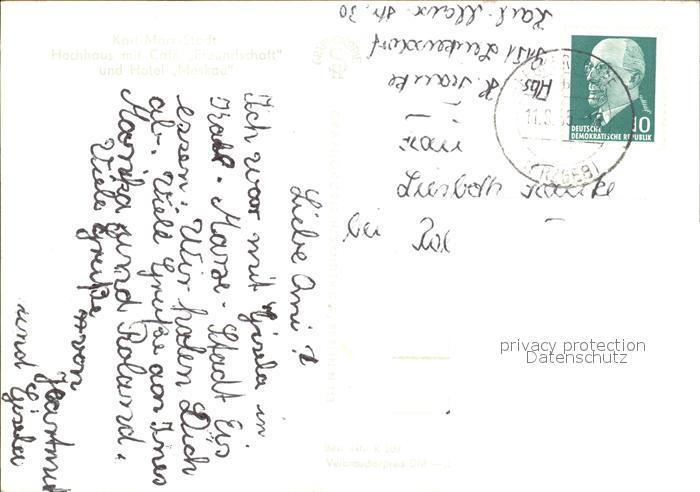 Karl-Marx-Stadt
Hochhaus mit Café „Freundschaft"
und Hotel „Moskau"
Liebe Omi!
Ich war mit Gisela in
Karl-Marx-Stadt Eis
essen. Wir holen Dich
ab. Viele Grüße an Ines
Monika und Roland.
Viele Grüße
von
Hartmut
und Gisela
Abs. H.
Karl-Marx-Str. 30
Frau
Liesbeth
bei
DEUTSCHE
DEMOKRATISCHE REPUBLIK
10
(ERZGEB)
Verbraucherpreis DM
privacy protection
Datenschutz